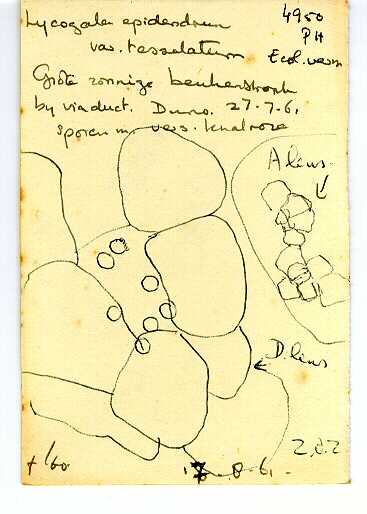 Lycogala epidendrum
var. tesselatum
4950
PH
Ecol. verm
Grote zonnige beukenstronk
by viaduct. Duno. 27-7-61
sporen in vers. knalroze
A lens
D lens
2.8.2
× 60
8-61-